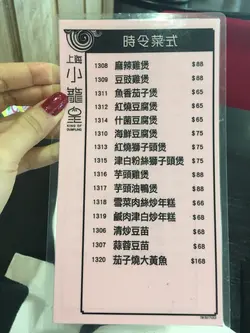 時令菜式
上海
小籠皇
KING OF
DUMPLING
1308 麻辣雞煲 $88
1309 豆豉雞煲 $88
1311 魚香茄子煲 $65
1312 紅燒豆腐煲 $65
1314 什菌豆腐煲 $65
1310 海鮮豆腐煲 $75
1313 紅燒獅子頭煲 $75
1315 津白粉絲獅子頭煲 $75
1316 芋頭雞煲 $88
1317 芋頭油鴨煲 $88
1318 雪菜肉絲炒年糕 $68
1319 鹹肉津白炒年糕 $68
1306 清炒豆苗 $68
1307 蒜蓉豆苗 $68
1320 茄子燒大黃魚 $168